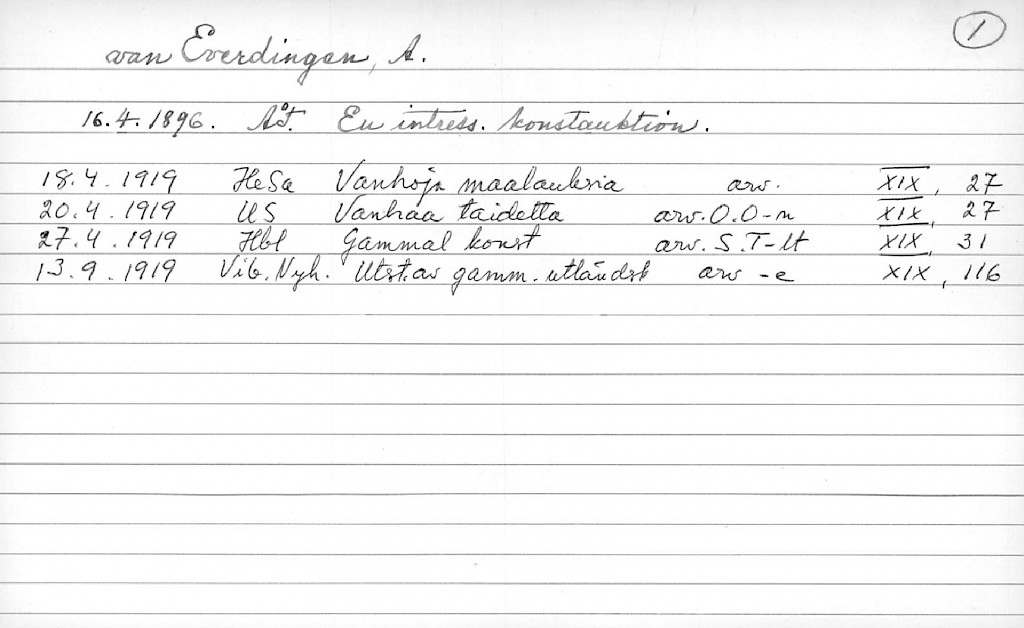 1
van Everdingen, A.
16.4.1896. ÅT. En intress. konstauktion.
18.4.1919 HeSa Vanhoja maalauksia arv. XIX, 27
20.4.1919 US Vanhaa taidetta arv. O.O-n XIX, 27
27.4.1919 Hbl Gammal konst arv. S.T-lt XIX, 31
13.9.1919 Vib. Nyh. Utst. av gamm. utländsk arv -e XIX, 116